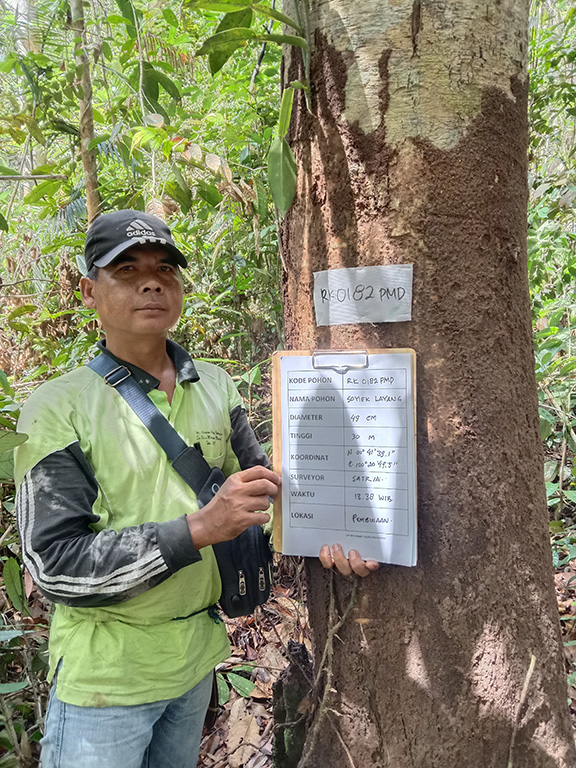 adidas
RK 0182 PMD
KODE POHON RK 0182 PMD
NAMA POHON SONTEK LAYANG
DIAMETER 49 CM
TINGGI 30 M
KOORDINAT N 00° 41' 39.1"
E 100° 20' 49.5"
SURVEYOR SATRIA.
WAKTU 13.38 WIB
LOKASI PEMBUKAAN.